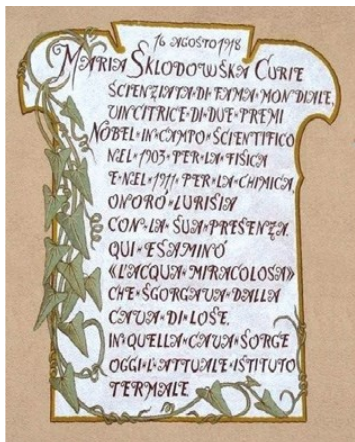 16 AGOSTO 1918
MARIA SKLODOWSKA CURIE
SCIENZIATA DI FAMA MONDIALE,
VINCITRICE DI DUE PREMI
NOBEL IN CAMPO SCIENTIFICO
NEL 1903 PER LA FISICA
E NEL 1911 PER LA CHIMICA,
ONORÓ LURISIA
CON LA SUA PRESENZA.
QUI ESAMINÓ
«L'ACQUA MIRACOLOSA»
CHE SGORGAVA DALLA
CAVA DI LOSE.
IN QUELLA CAVA SORGE
OGGI L'ATTUALE ISTITUTO
TERMALE.